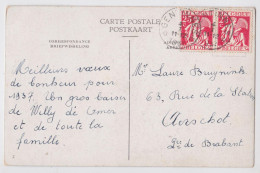 CARTE POSTALE
POSTKAART
CORRESPONDANCE
BRIEFWISSELING
Meilleurs vœux
de bonheur pour
1937. Un gros baiser
de Willy de Gens
et de toute la
famille.
Mr Laure Buyninck
63, Rue de la Station
Aerschot
de Brabant